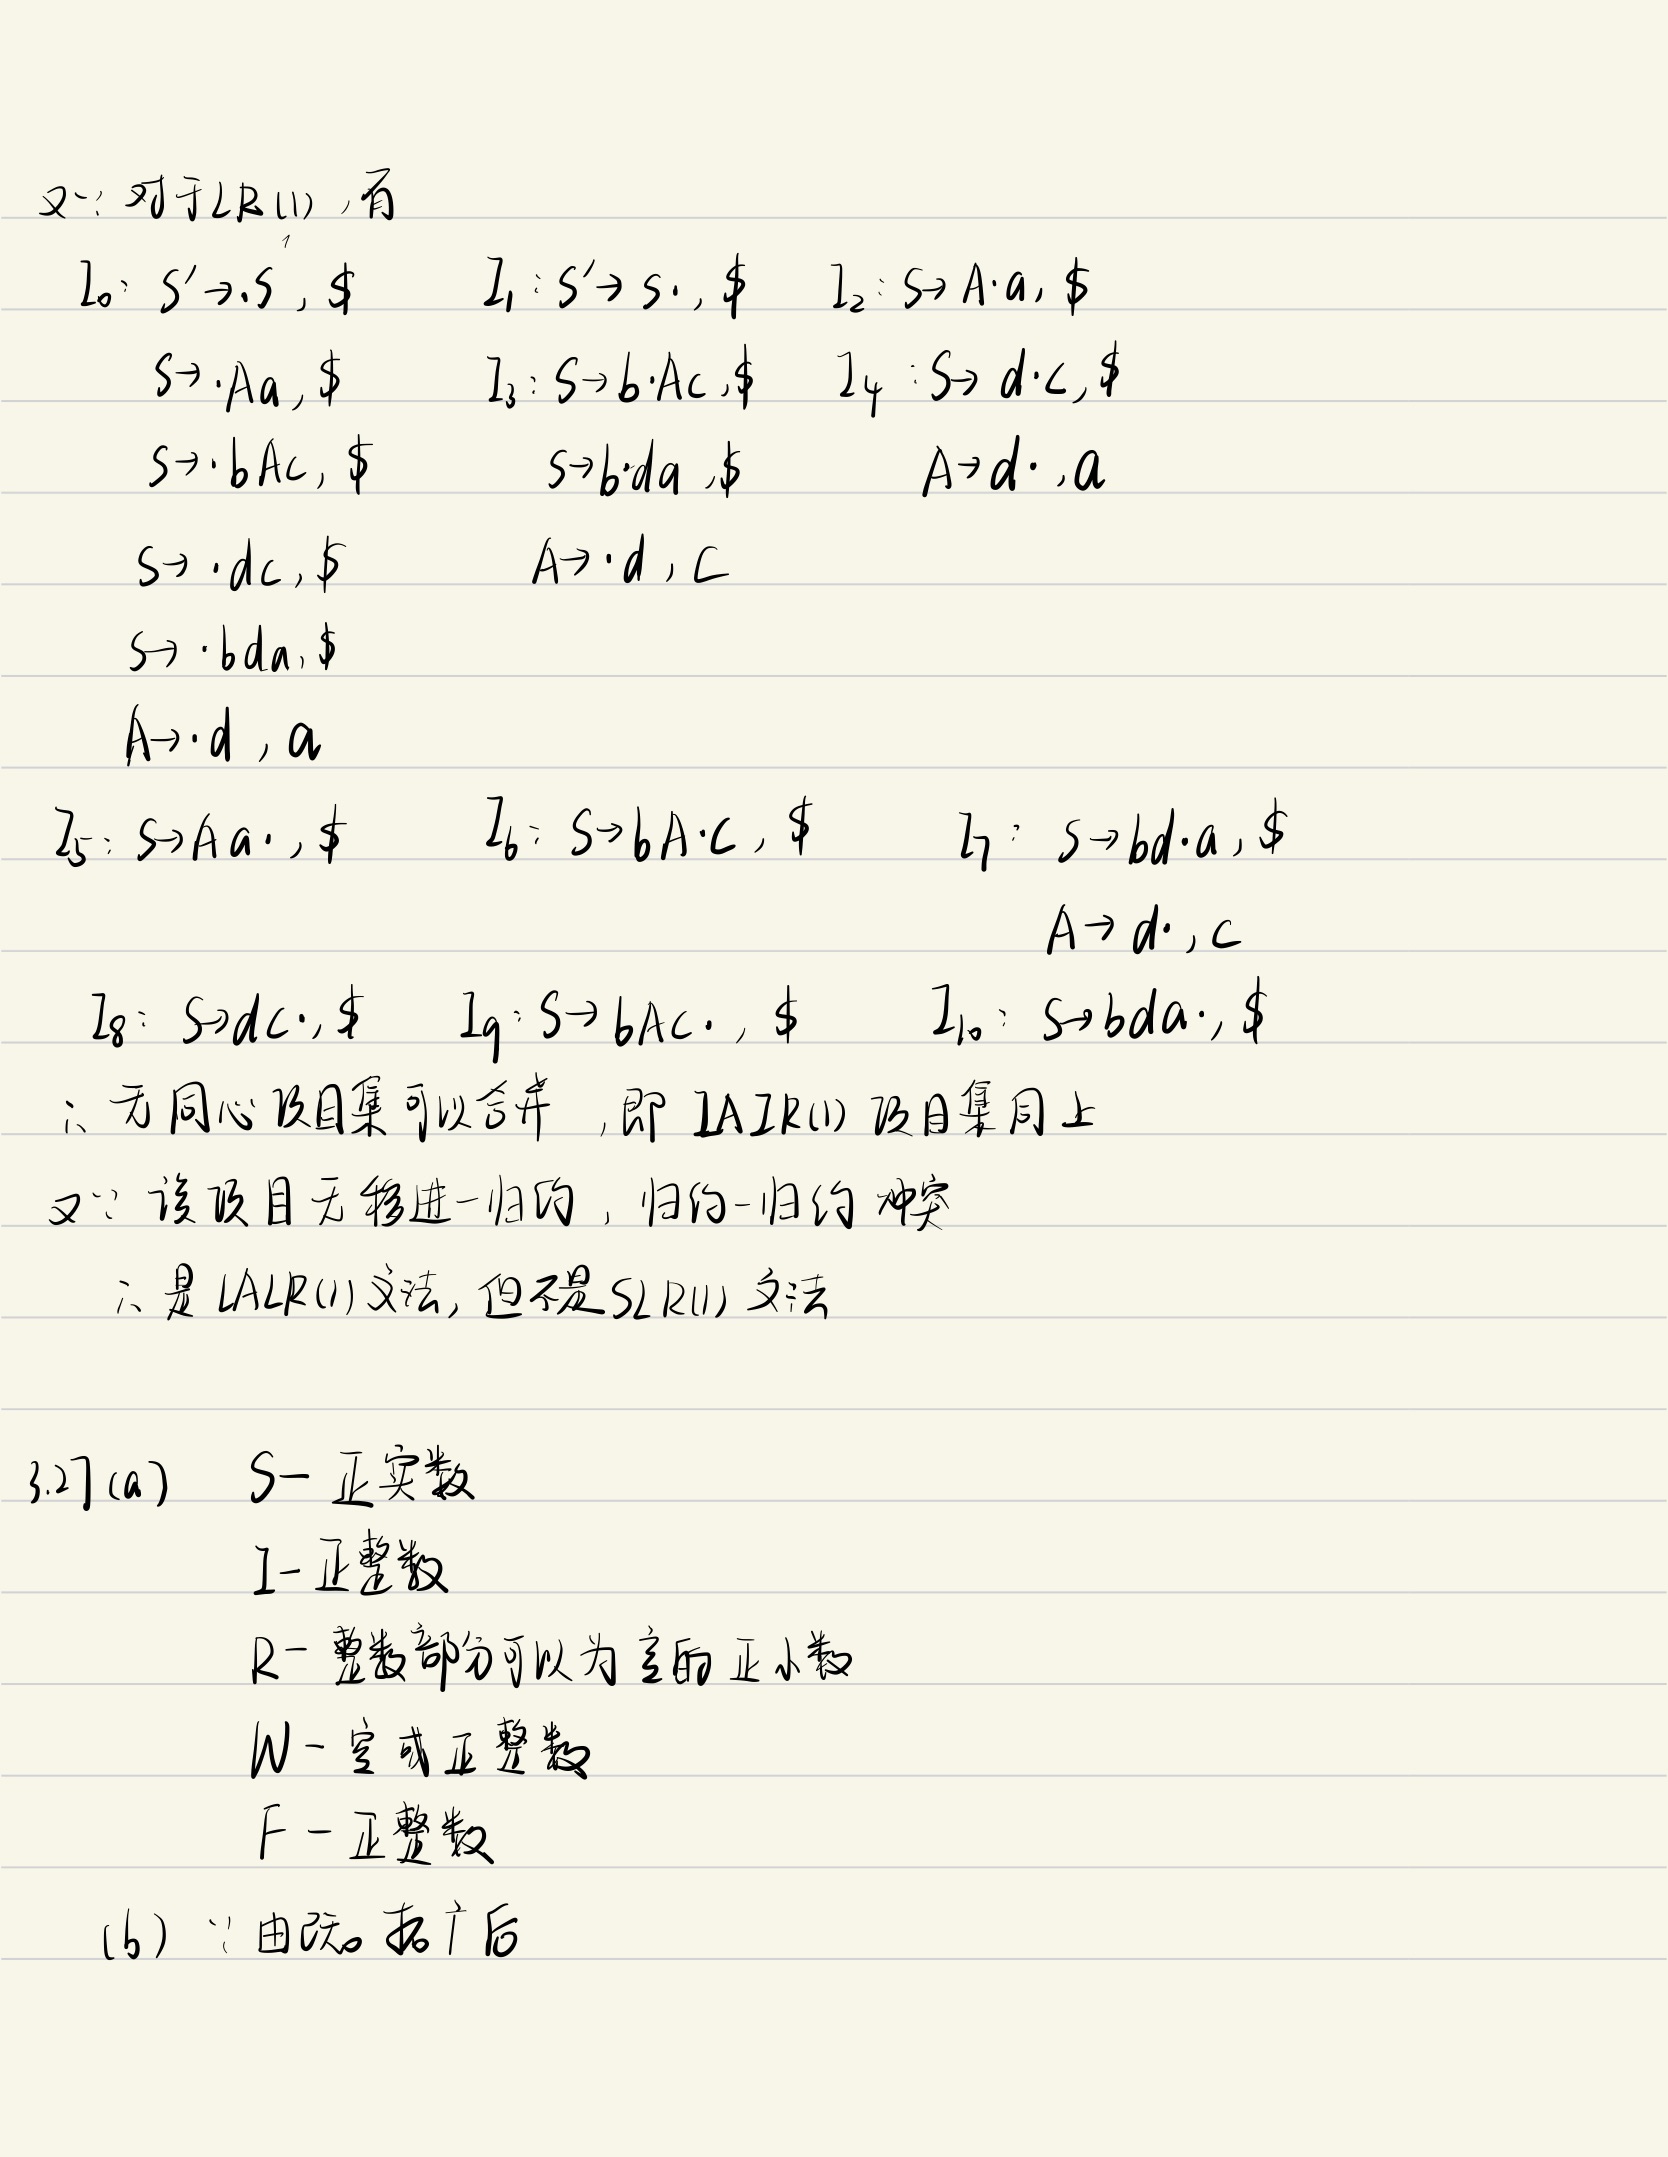 又∵对于LR(1),有
I₀: S'→.S, $ I₁: S'→S·, $ I₂: S→A·a, $
S→·Aa, $ I₃: S→b·Ac, $ I₄: S→d·c, $
S→·bAc, $ S→b·da, $ A→d·, a
S→·dc, $ A→·d, c
S→·bda, $
A→·d, a
I₅: S→Aa·, $ I₆: S→bA·c, $ I₇: S→bd·a, $
A→d·, c
I₈: S→dc·, $ I₉: S→bAc·, $ I₁₀: S→bda·, $
∴无同心项目集可以合并,即LALR(1)项目集同上
又∵该项目无移进-归约,归约-归约冲突
∴是LALR(1)文法,但不是SLR(1)文法
3.27(a) S-正实数
I-正整数
R-整数部分可以为空的正小数
W-空或正整数
F-正整数
(b) ∵由 拓广后